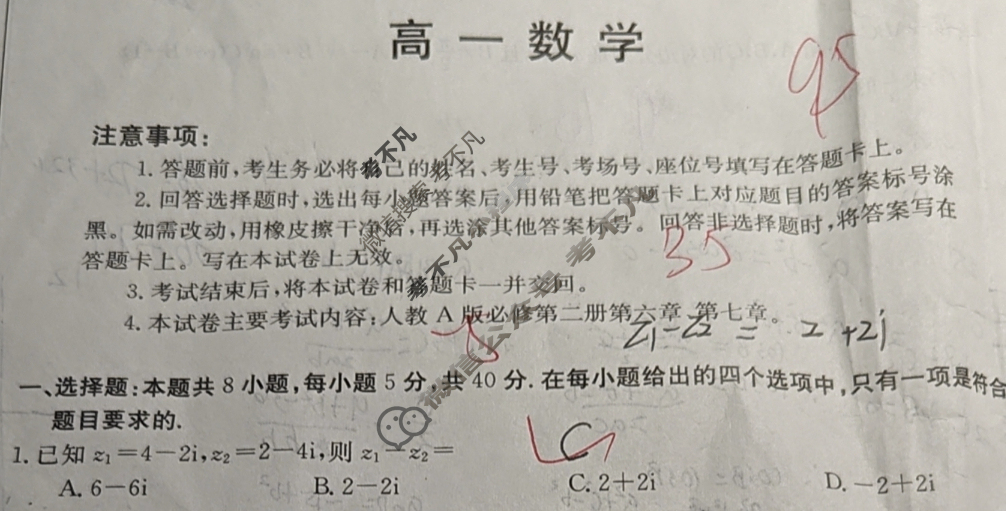 高一数学
95
注意事项：
1. 答题前，考生务必将自己的姓名、考生号、考场号、座位号填写在答题卡上。
2. 回答选择题时，选出每小题答案后，用铅笔把答题卡上对应题目的答案标号涂
黑。如需改动，用橡皮擦干净后，再选涂其他答案标号。回答非选择题时，将答案写在
答题卡上。写在本试卷上无效。
35
3. 考试结束后，将本试卷和答题卡一并交回。
4. 本试卷主要考试内容：人教 A 版必修第二册第六章、第七章。
-5
z₁-z₂ = 2+2i
一、选择题：本题共 8 小题，每小题 5 分，共 40 分. 在每小题给出的四个选项中，只有一项是符合
题目要求的.
1. 已知 z₁=4-2i,z₂=2-4i,则 z₁-z₂=
C
A. 6-6i B. 2-2i C. 2+2i D. -2+2i